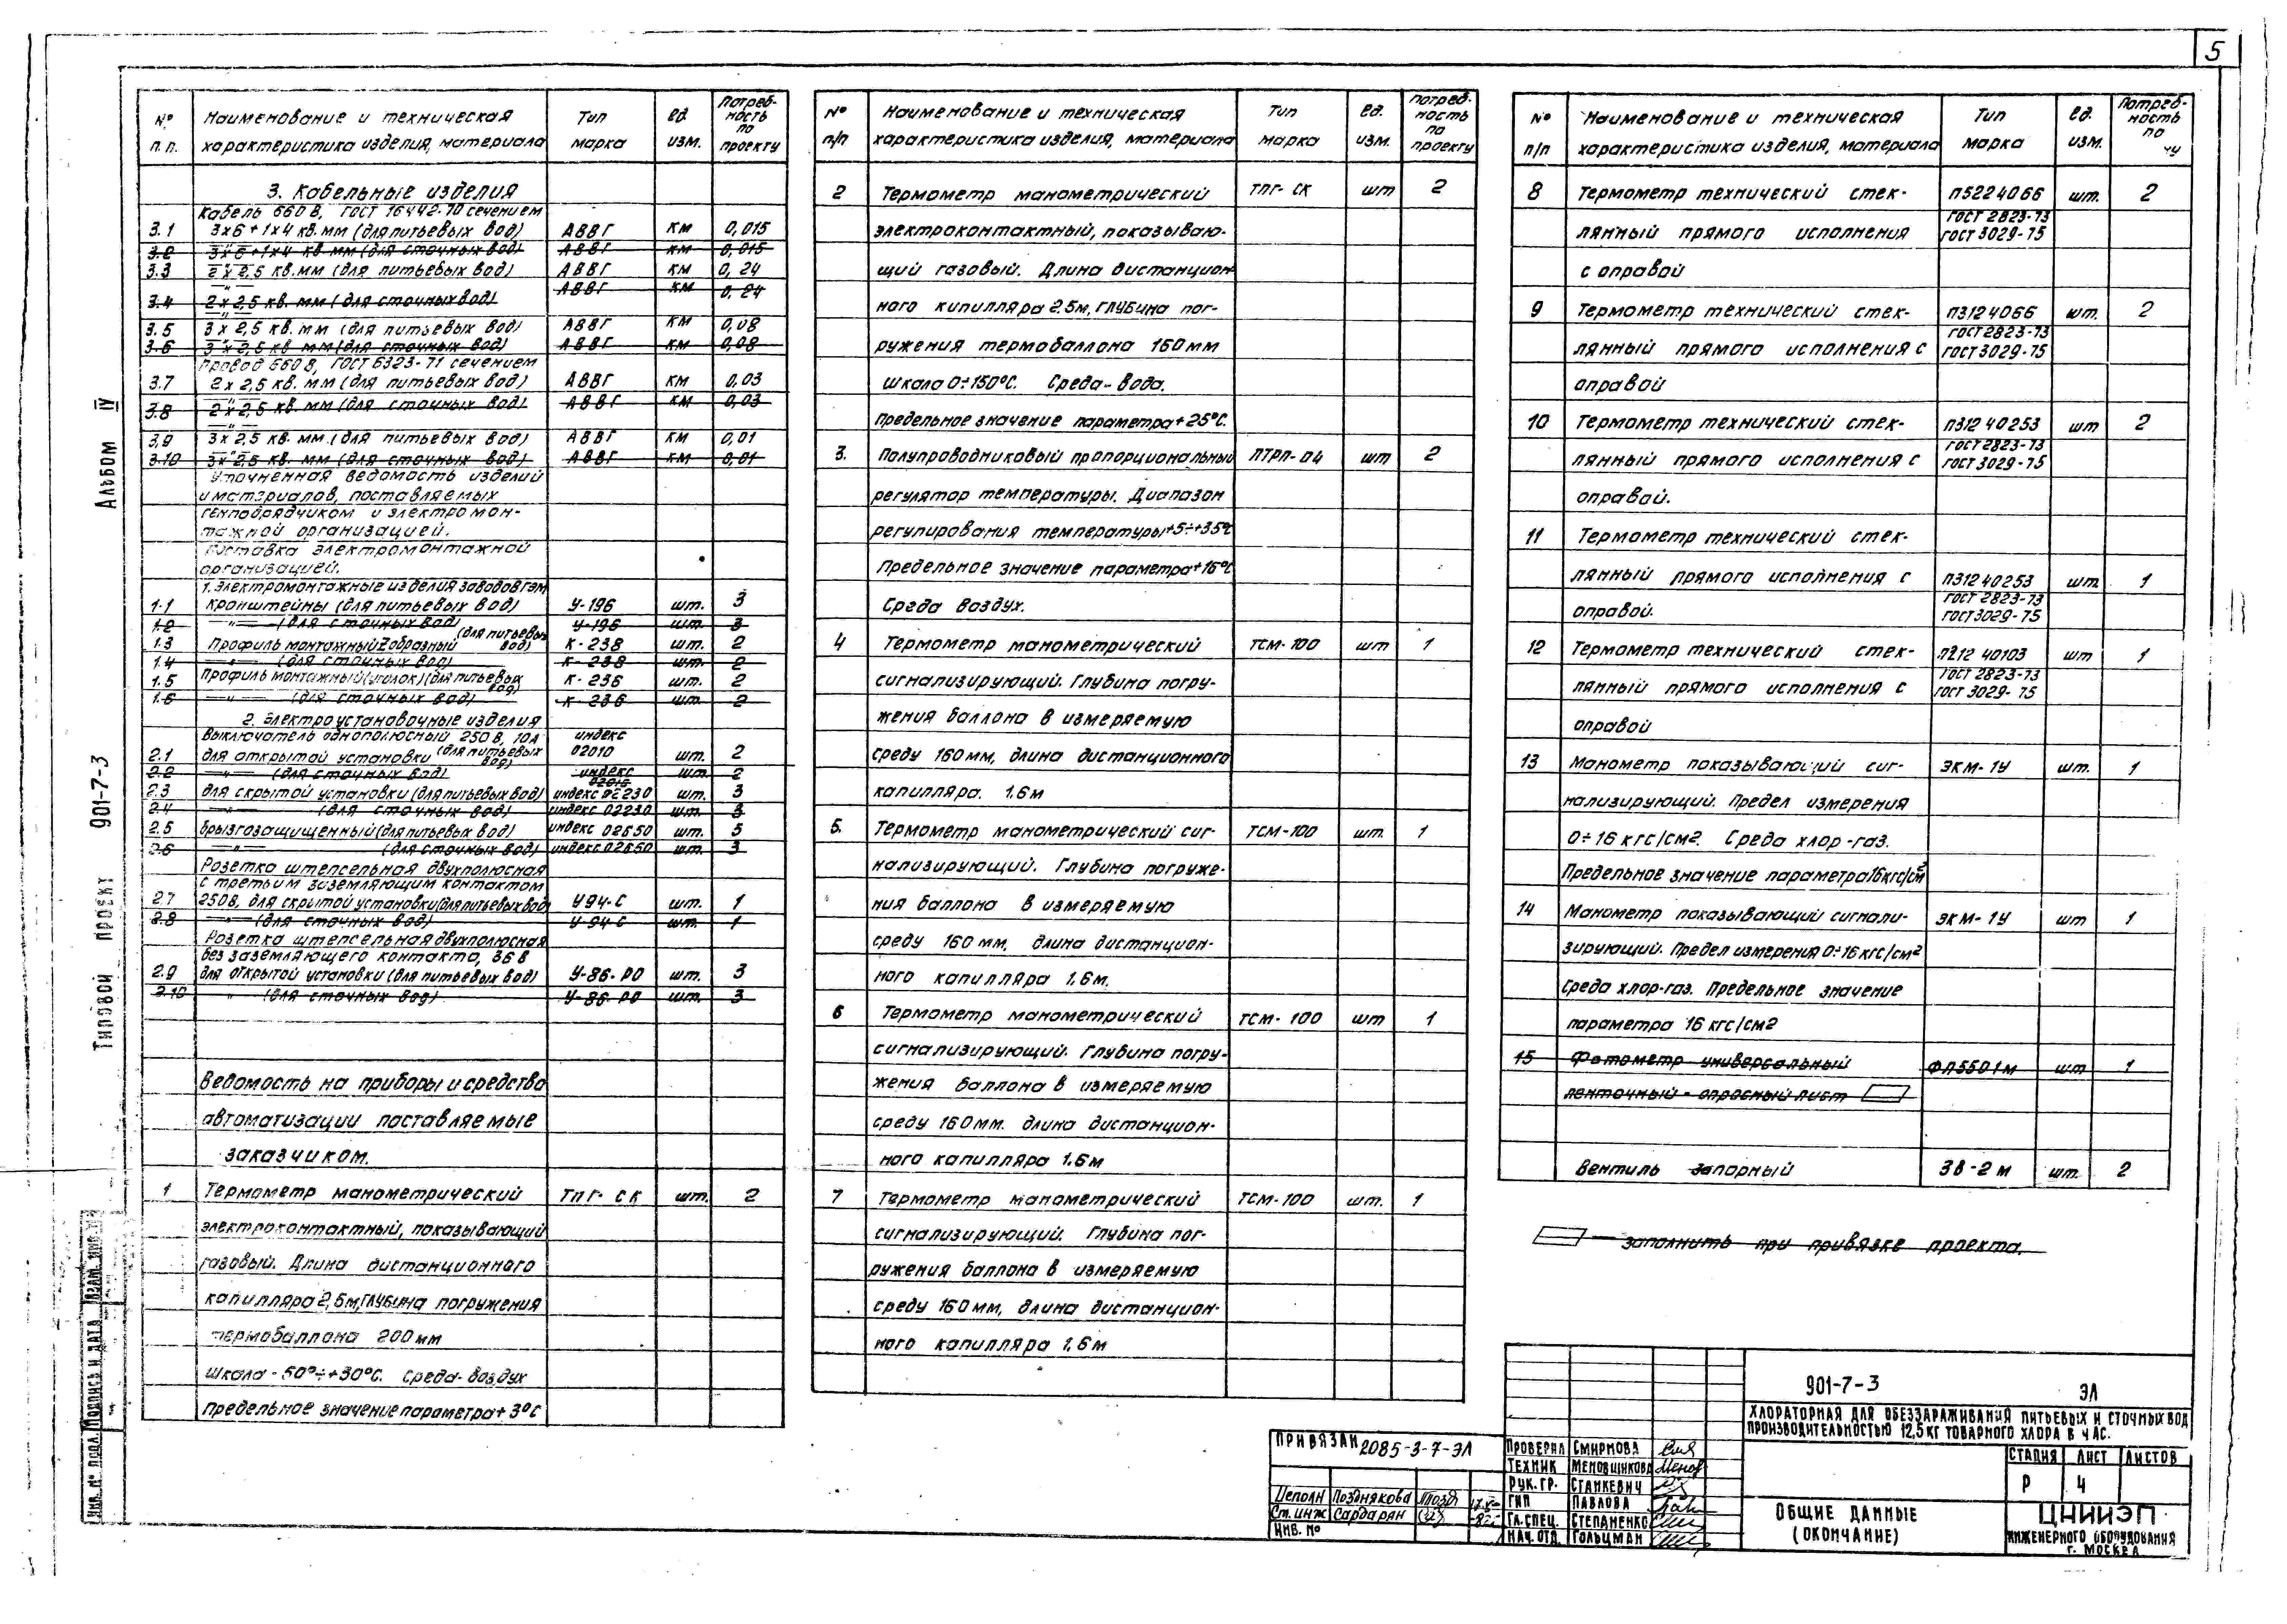 5
Альбом IV
Типовой проект 901-7-3
№ п.п. Наименование и техническая характеристика изделия, материала Тип марка ед. изм. Потреб-ность по проекту
3. Кабельные изделия
Кабель 660 В, ГОСТ 16442-70 сечением
3.1 3х6+1х4 кв.мм (для питьевых вод) АВВГ км 0,015
3.2 3х6+1х4 кв.мм (для сточных вод) АВВГ км 0,015
3.3 2х2,5 кв.мм (для питьевых вод) АВВГ км 0,24
3.4 2х2,5 кв.мм (для сточных вод) АВВГ км 0,24
3.5 3х2,5 кв.мм (для питьевых вод) АВВГ км 0,08
3.6 3х2,5 кв мм (для сточных вод) АВВГ км 0,08
Провод 660 В, ГОСТ 6323-71 сечением
3.7 2х2,5 кв.мм (для питьевых вод) АВВГ км 0,03
3.8 2х2,5 кв.мм (для сточных вод) АВВГ км 0,03
3,9 3х2,5 кв.мм (для питьевых вод) АВВГ км 0,01
3.10 3х2,5 кв.мм (для сточных вод) АВВГ км 0,01
Уточненная ведомость изделий
и материалов, поставляемых
генподрядчиком и электромон-
тажной организацией.
Поставка электромонтажной
организацией.
1. Электромонтажные изделия заводов ГЭМ
1.1 Кронштейны (для питьевых вод) У-196 шт. 3
1.2 —"— (для сточных вод) У-196 шт. 3
1.3 Профиль монтажный Z образный (для питьевых вод) К-238 шт. 2
1.4 —"— (для сточных вод) К-238 шт. 2
1.5 Профиль монтажный (уголок) (для питьевых вод) К-236 шт. 2
1.6 —"— (для сточных вод) К-236 шт. 2
2. Электроустановочные изделия
Выключатель однополюсный 250 В, 10А индекс
2.1 для открытой установки (для питьевых вод) 02010 шт. 2
2.2 —"— (для сточных вод) индекс 02010 шт. 2
2.3 для скрытой установки (для питьевых вод) индекс 02230 шт. 3
2.4 —"— (для сточных вод) индекс 02230 шт. 3
2.5 брызгозащищенный (для питьевых вод) индекс 02650 шт. 5
2.6 —"— (для сточных вод) индекс 02650 шт. 3
Розетка штепсельная двухполюсная
с третьим заземляющим контактом
2.7 250В, для скрытой установки (для питьевых вод) У94-С шт. 1
2.8 —"— (для сточных вод) У-94-С шт. 1
Розетка штепсельная двухполюсная
без заземляющего контакта, 36 В
2.9 для открытой установки (для питьевых вод) У-86-РО шт. 3
2.10 " (для сточных вод) У-86-РО шт. 3
Ведомость на приборы и средства
автоматизации поставляемые
заказчиком.
1 Термометр манометрический ТПГ-СК шт. 2
электроконтактный, показывающий
газовый. Длина дистанционного
капилляра 2,5м, глубина погружения
термобаллона 200мм
шкала -50°÷+30°С. Среда-воздух
Предельное значение параметра +3°С
№ п/п Наименование и техническая характеристика изделия, материала Тип марка ед. изм. Потреб-ность по проекту
2 Термометр манометрический ТПГ-СК шт 2
электроконтактный, показываю-
щий газовый. Длина дистанцион-
ного кипилляра 2.5м, глубина пог-
ружения термобаллона 160мм
шкала 0÷150°С. Среда-вода.
Предельное значение параметра +25°С.
3. Полупроводниковый пропорциональный ПТРП-04 шт 2
регулятор температуры. Диапазон
регулирования температуры +5÷+35°С
Предельное значение параметра +16°С
Среда воздух.
4 Термометр манометрический ТСМ-100 шт 1
сигнализирующий. Глубина погру-
жения баллона в измеряемую
среду 160мм, длина дистанционного
капилляра. 1.6м
5. Термометр манометрический сиг- ТСМ-100 шт. 1
нализирующий. Глубина погруже-
ния баллона в измеряемую
среду 160мм, длина дистанцион-
ного капилляра 1.6м.
6 Термометр манометрический ТСМ-100 шт 1
сигнализирующий. Глубина погру-
жения баллона в измеряемую
среду 160мм. длина дистанцион-
ного капилляра 1.6м
7 Термометр манометрический ТСМ-100 шт. 1
сигнализирующий. Глубина пог-
ружения баллона в измеряемую
среду 160мм, длина дистанцион-
ного капилляра 1,6м
№ п/п Наименование и техническая характеристика изделия, материала Тип марка ед. изм. Потреб-ность по
8 Термометр технический стек- П5224066 шт. 2
лянный прямого исполнения ГОСТ 2823-73 ГОСТ 3029-75
с оправой
9 Термометр технический стек- П3124066 шт. 2
лянный прямого исполнения с ГОСТ 2823-73 ГОСТ 3029-75
оправой
10 Термометр технический стек- П312 40253 шт 2
лянный прямого исполнения с ГОСТ 2823-73 ГОСТ 3029-75
оправой.
11 Термометр технический стек-
лянный прямого исполнения с П312 40253 шт. 1
оправой. ГОСТ 2823-73 ГОСТ 3029-75
12 Термометр технический стек- П212 40103 шт 1
лянный прямого исполнения с ГОСТ 2823-73 ГОСТ 3029-75
оправой
13 Манометр показывающий сиг- ЭКМ-1У шт. 1
нализирующий. Предел измерения
0÷16 кгс/см2. Среда хлор-газ.
Предельное значение параметра 16кгс/см2
14 Манометр показывающий сигнали- ЭКМ-1У шт 1
зирующий. Предел измерения 0÷16 кгс/см2
Среда хлор-газ. Предельное значение
параметра 16 кгс/см2
15 Фотометр универсальный ФЛ5501м шт 1
ленточный - опросный лист
Вентиль запорный ЗВ-2м шт. 2
— заполнить при привязке проекта.
Инв. № подл. Подпись и дата Взам. инв. №
Привязан 2085-3-7-ЭЛ
Исполн Позднякова
Ст. инж Сардарян
Инв. №
Проверил Смирнова
Техник Меновщикова
Рук. гр. Станкевич
ГИП Павлова
Гл. спец. Степаненко
Нач. отд. Гольцман
901-7-3 ЭЛ
Хлораторная для обеззараживания питьевых и сточных вод
производительностью 12,5 кг товарного хлора в час.
Стадия Лист Листов
Р 4
Общие данные
(окончание)
ЦНИИЭП
инженерного оборудования
г. Москва